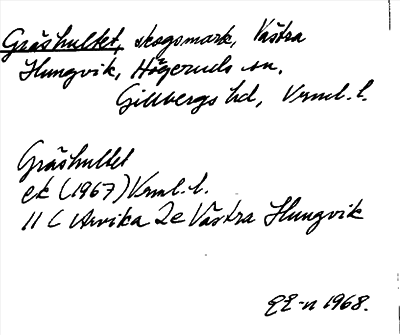 Gräshultet, skogsmark, Västra
Hungvik, Högeruds sn.
Gillbergs hd, Vrml. l.
Gräshultet
ek (1967) Vrml. l.
11 C Arvika 2e Västra Hungvik
1968.